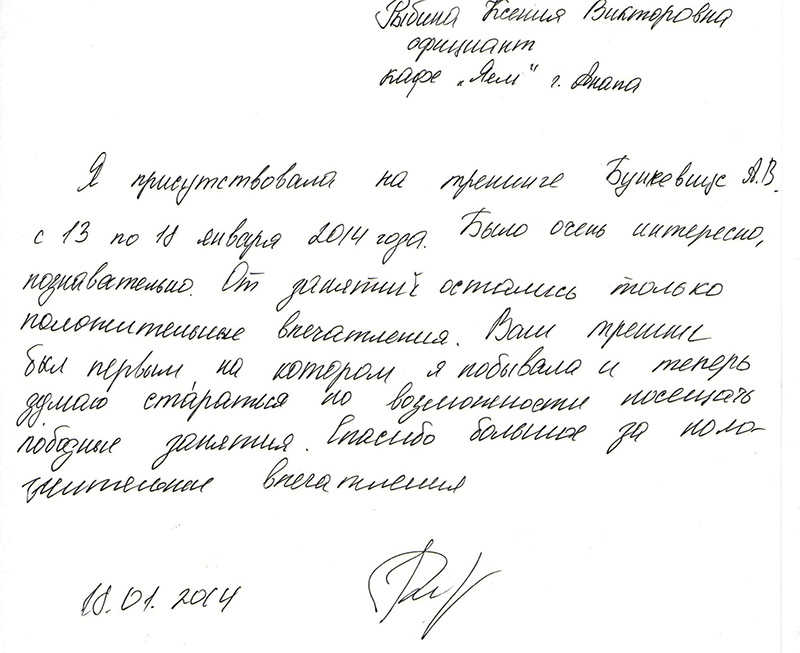 Рыбина Ксения Викторовна
официант
кафе „Яем" г. Анапа
Я присутствовала на тренинге Бункевиус А.В.
с 13 по 18 января 2014 года. Было очень интересно,
познавательно. От занятий остались только
положительные впечатления. Ваш тренинг
был первым на котором я побывала и теперь
думаю стараться по возможности посещать
подобные занятия. Спасибо большое за поло-
жительное впечатления
18.01.2014